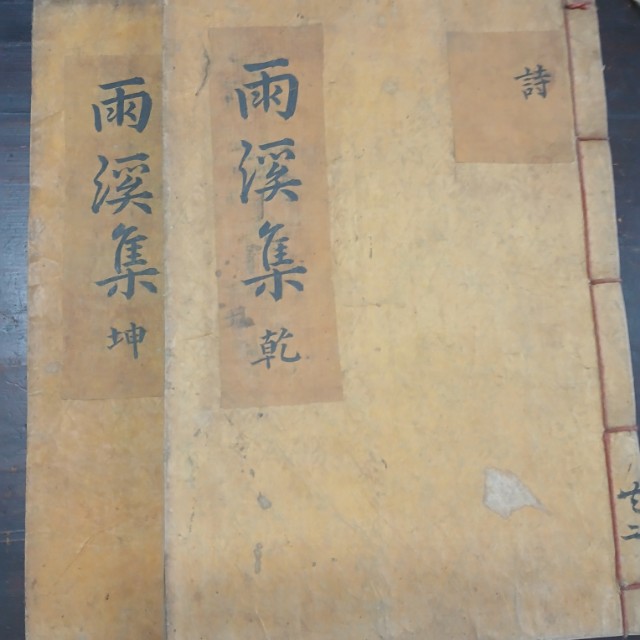 詩
雨溪集 乾
雨溪集 坤
共二